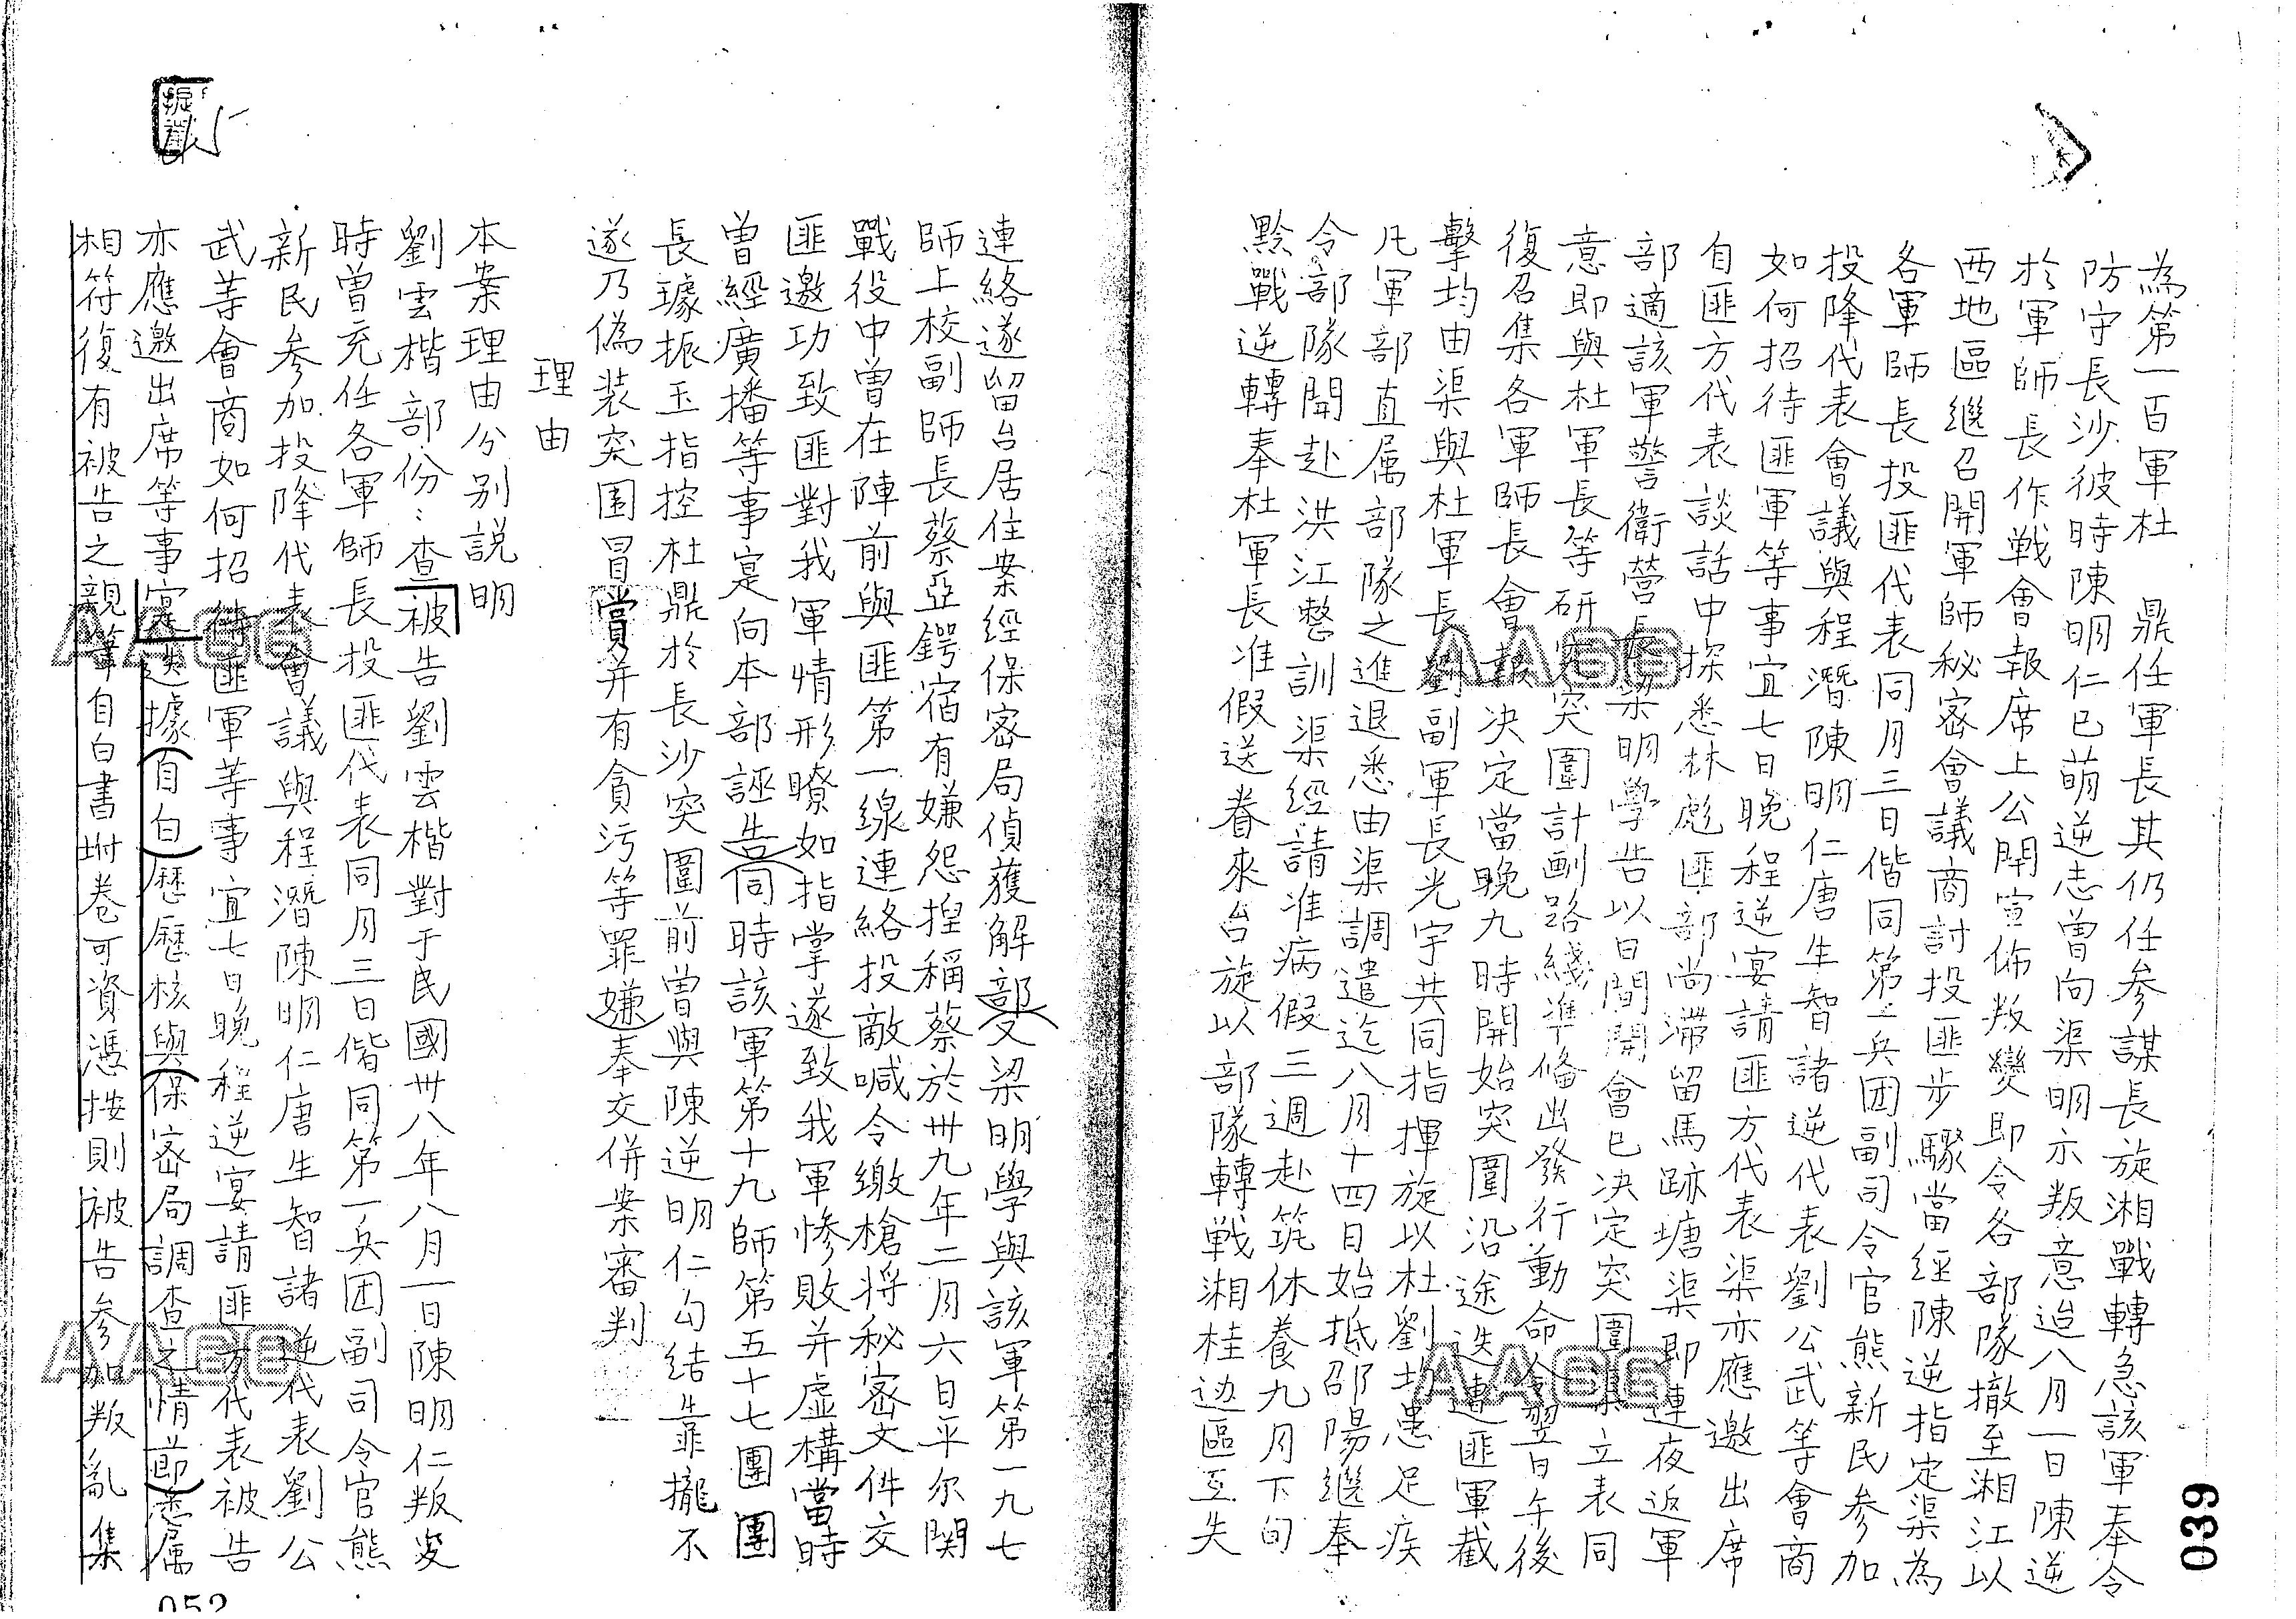 為第一百軍杜　鼎任軍長其仍任參謀長旋湘戰轉急該軍奉令
防守長沙彼時陳明仁已萌逆志曾向渠明示叛意迨八月一日陳逆
於軍師長作戦會報席上公開宣佈叛變即令各部隊撤至湘江以
西地區継召開軍師秘密會議商討投匪步驟當經陳逆指定渠為
各軍師長投匪代表同月三日偕同第一兵团副司令官熊新民參加
投降代表會議與程潛陳明仁唐生智諸逆代表劉公武等會商
如何招待匪軍等事宜七日晚程逆宴請匪方代表渠亦應邀出席
自匪方代表談話中探悉林彪匪部尚滯留馬跡塘渠即連夜返軍
部適該軍警衛營長梁明學告以日間開會已决定突圍渠立表同
意即與杜軍長等研究突圍計劃路綫準備出發行動命令翌日午後
復召集各軍師長會報决定當晚九時開始突圍沿途迭遭匪軍截
擊均由渠與杜軍長劉副軍長光宇共同指揮旋以杜劉均患足疾
凡軍部直属部隊之進退悉由渠調遣迄八月十四日始抵邵陽継奉
令部隊開赴洪江整訓渠經請准病假三週赴筑休養九月下旬
黔戰逆轉奉杜軍長准假送眷來台旋以部隊轉戦湘桂边區互失
039
連絡遂留台居住案經保密局偵獲解部又梁明學與該軍第一九七
師上校副師長蔡亞鍔宿有嫌怨揑稱蔡於卅九年二月六日平尔関
戰役中曾在陣前與匪第一線連絡投敵喊令繳槍将秘密文件交
匪邀功致匪對我軍情形瞭如指掌遂致我軍惨敗并虛構當時
曾經廣播等事寔向本部誣告同時該軍第十九師第五十七團團
長璩振玉指控杜鼎於長沙突圍前曾與陳逆明仁勾結靠攏不
遂乃偽装突围冒賞并有貪污等罪嫌奉交併案審判
理由
本案理由分别説明
劉雲楷部份：查被告劉雲楷對于民國卅八年八月一日陳明仁叛变
時曾充任各軍師長投匪代表同月三日偕同第一兵团副司令官熊
新民參加投降代表會議與程潛陳明仁唐生智諸逆代表劉公
武等會商如何招待匪軍等事宜七日晚程逆宴請匪方代表被告
亦應邀出席等事寔迭據自白歷歷核與保密局調查之情節悉属
相符復有被告之親筆自白書坿卷可資憑按則被告參加叛亂集